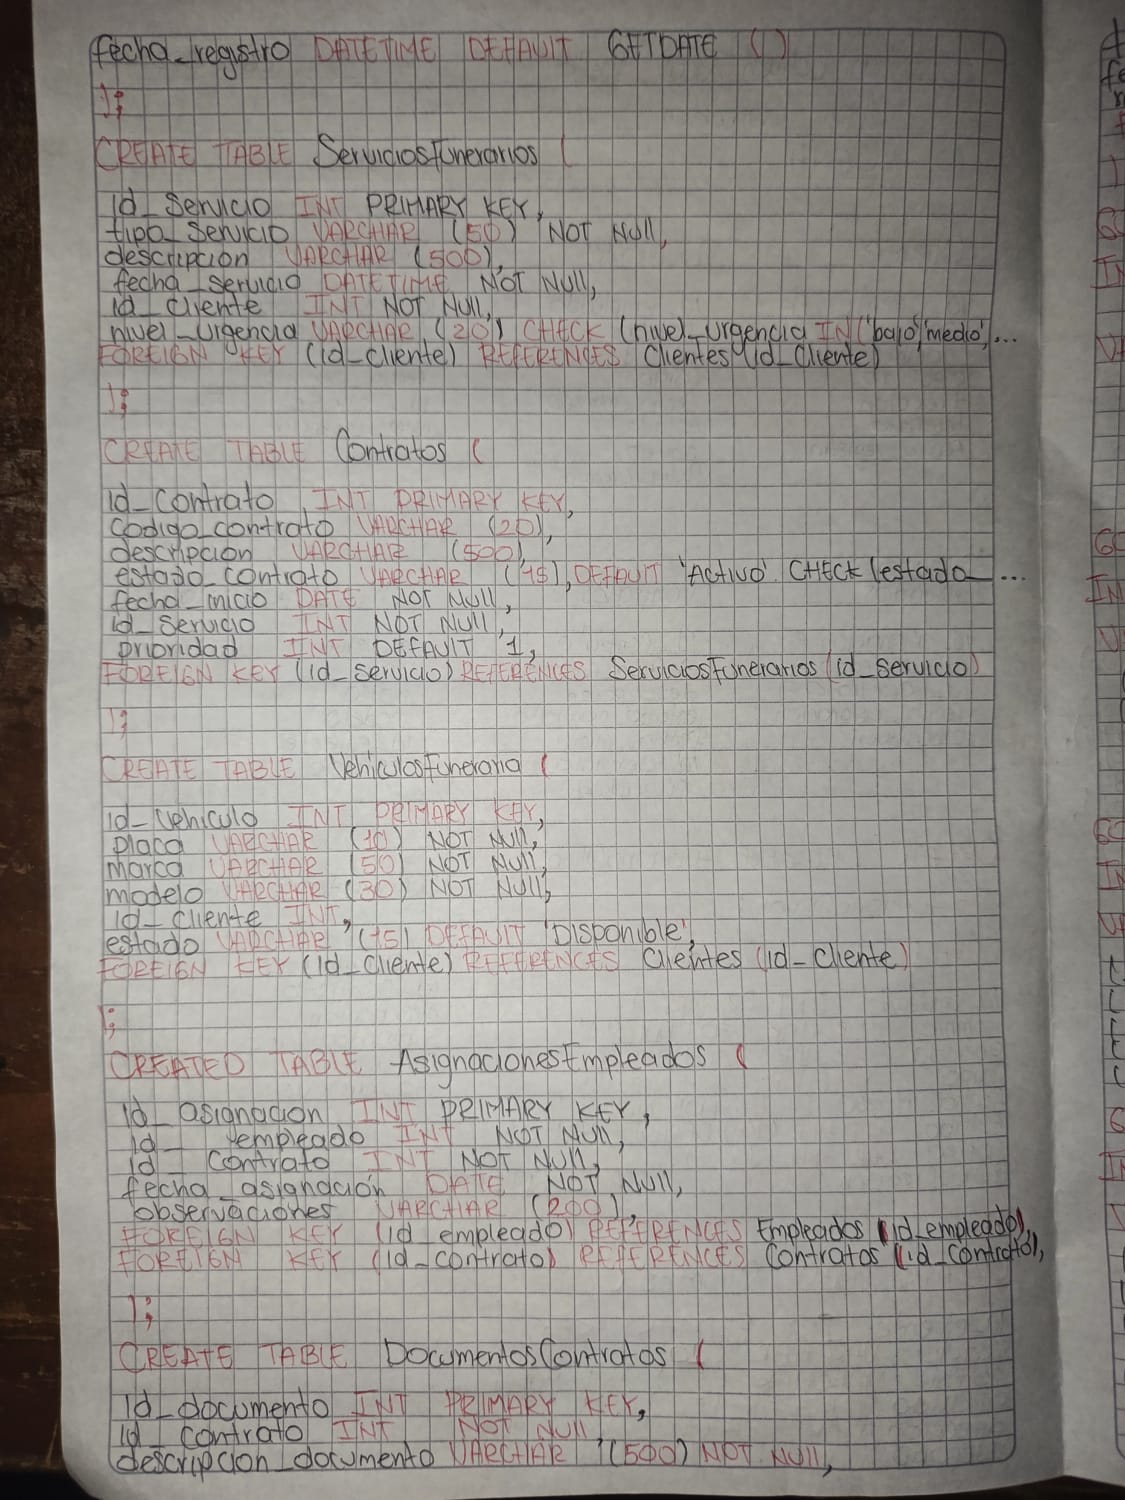 fecha_registro DATETIME DEFAULT GETDATE ()
);
CREATE TABLE ServiciosFunerarios (
id_servicio INT PRIMARY KEY,
tipo_servicio VARCHAR (50) NOT NUll,
descripcion VARCHAR (500),
fecha_servicio DATETIME NOT NUll,
id_cliente INT NOT NUll,
nivel_urgencia VARCHAR (20) CHECK (nivel_urgencia IN('bajo','medio',...
FOREIGN KEY (id_cliente) REFERENCES Clientes (id_Cliente)
);
CREATE TABLE Contratos (
id_contrato INT PRIMARY KEY,
codigo_contrato VARCHAR (20),
descripcion VARCHAR (500),
estado_contrato VARCHAR (15), DEFAULT 'Activo' CHECK (estado_...
fecha_inicio DATE NOT NUll,
id_servicio INT NOT NUll,
prioridad INT DEFAULT 1,
FOREIGN KEY (id_servicio) REFERENCES ServiciosFunerarios (id_servicio)
);
CREATE TABLE VehiculosFuneraria (
id_vehiculo INT PRIMARY KEY,
placa VARCHAR (10) NOT NUll,
marca VARCHAR (50) NOT NUll,
modelo VARCHAR (30) NOT NUll,
id_cliente INT,
estado VARCHAR (15) DEFAULT 'Disponible',
FOREIGN KEY (id_cliente) REFERENCES Clientes (id_Cliente)
);
CREATED TABLE AsignacionesEmpleados (
id_asignacion INT PRIMARY KEY,
id_ empleado INT NOT NUll,
id_ contrato INT NOT NUll,
fecha_asignación DATE NOT NUll,
observaciones VARCHAR (200),
FOREIGN KEY (id_empleado) REFERENCES Empleados (id_empleado),
FOREIGN KEY (id_contrato) REFERENCES Contratos (id_contrato),
);
CREATE TABLE DocumentosContratos (
id_documento INT PRIMARY KEY,
id_contrato INT NOT NUll,
descripcion_documento VARCHAR (500) NOT NUll,